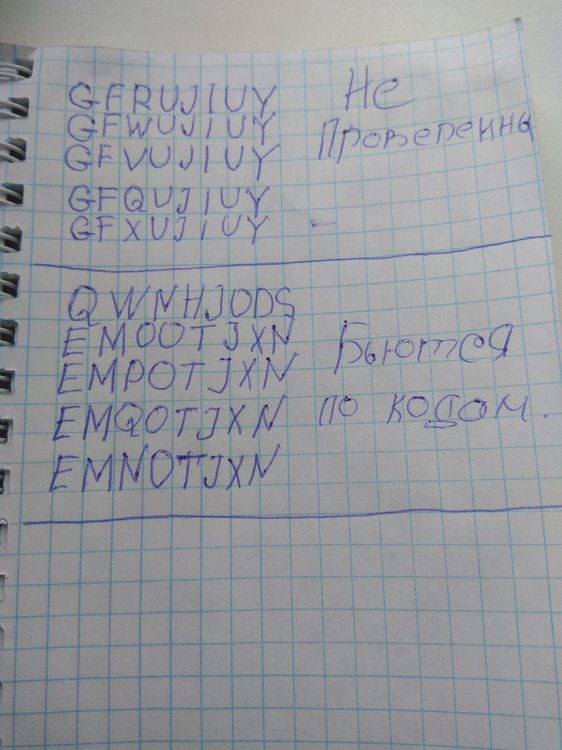 GFRUJIUY Не
GFWUJIUY
GFVUJIUY Проверенны
GFQUJIUY
GFXUJIUY -
QWNHJODS
EMOOTJXN Бьются
EMPOTJXN
EMQOTJXN по кодам.
EMNOTJXN